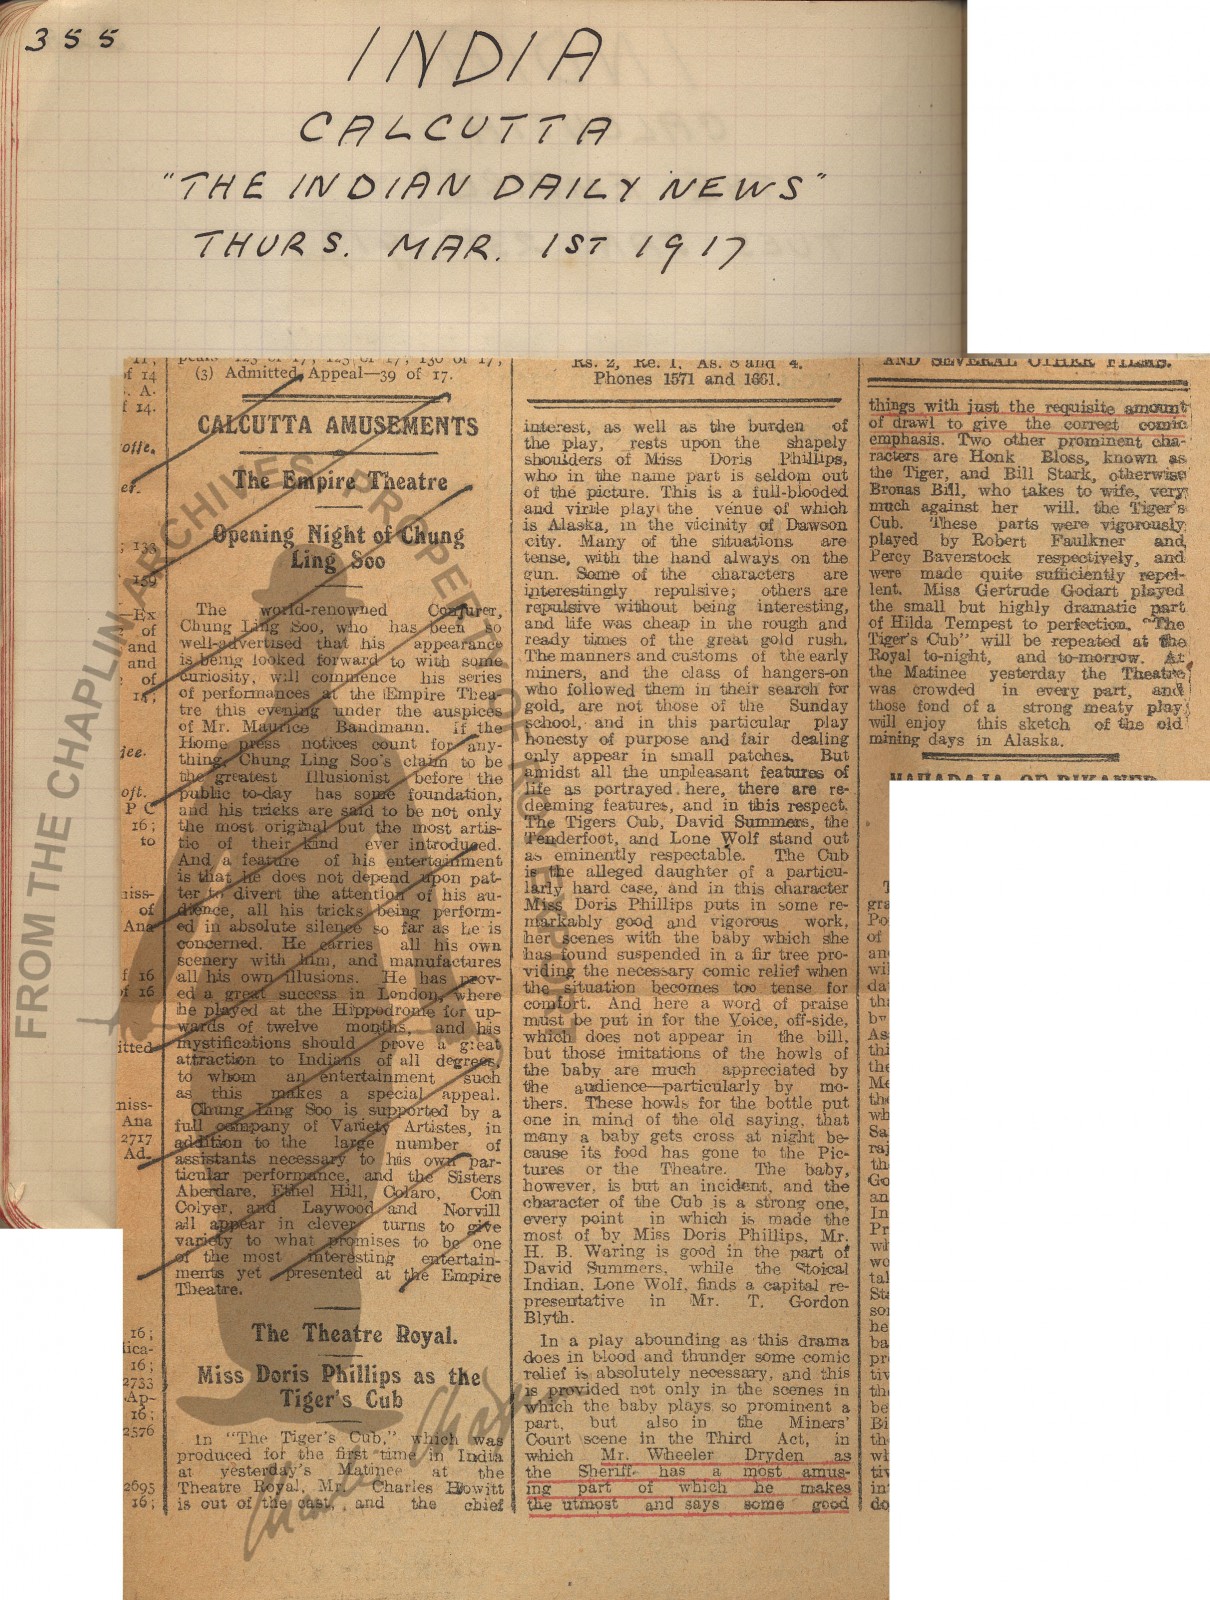 355
INDIA
CALCUTTA
"THE INDIAN DAILY NEWS"
THURS. MAR. 1ST 1917
(3) Admitted Appeal—39 of 17.
CALCUTTA AMUSEMENTS
The Empire Theatre
Opening Night of Chung
Ling Soo
The world-renowned Conjurer,
Chung Ling Soo, who has been so
well-advertised that his appearance
is being looked forward to with some
curiosity, will commence his series
of performances at the Empire Thea-
tre this evening under the auspices
of Mr. Maurice Bandmann. If the
Home press notices count for any-
thing, Chung Ling Soo's claim to be
the greatest Illusionist before the
public to-day has some foundation,
and his tricks are said to be not only
the most original but the most artis-
tic of their kind ever introduced.
And a feature of his entertainment
is that he does not depend upon pat-
ter to divert the attention of his au-
dience, all his tricks being perform-
ed in absolute silence so far as he is
concerned. He carries all his own
scenery with him, and manufactures
all his own illusions. He has prov-
ed a great success in London, where
he played at the Hippodrome for up-
wards of twelve months, and his
mystifications should prove a great
attraction to Indians of all degrees,
to whom an entertainment such
as this makes a special appeal.
Chung Ling Soo is supported by a
full company of Variety Artistes, in
addition to the large number of
assistants necessary to his own par-
ticular performance, and the Sisters
Aberdare, Ethel Hill, Colaro, Con
Colyer, and Laywood and Norvill
all appear in clever turns to give
variety to what promises to be one
of the most interesting entertain-
ments yet presented at the Empire
Theatre.
The Theatre Royal.
Miss Doris Phillips as the
Tiger's Cub
In "The Tiger's Cub," which was
produced for the first time in India
at yesterday's Matinee at the
Theatre Royal, Mr. Charles Howitt
is out of the cast, and the chief
Rs. 2, Re. 1, As. 8 and 4.
Phones 1571 and 1661.
interest, as well as the burden of
the play, rests upon the shapely
shoulders of Miss Doris Phillips,
who in the name part is seldom out
of the picture. This is a full-blooded
and virile play the venue of which
is Alaska, in the vicinity of Dawson
city. Many of the situations are
tense, with the hand always on the
gun. Some of the characters are
interestingly repulsive; others are
repulsive without being interesting,
and life was cheap in the rough and
ready times of the great gold rush.
The manners and customs of the early
miners, and the class of hangers-on
who followed them in their search for
gold, are not those of the Sunday
school, and in this particular play
honesty of purpose and fair dealing
only appear in small patches. But
amidst all the unpleasant features of
life as portrayed here, there are re-
deeming features, and in this respect.
The Tigers Cub, David Summers, the
Tenderfoot, and Lone Wolf stand out
as eminently respectable. The Cub
is the alleged daughter of a particu-
larly hard case, and in this character
Miss Doris Phillips puts in some re-
markably good and vigorous work,
her scenes with the baby which she
has found suspended in a fir tree pro-
viding the necessary comic relief when
the situation becomes too tense for
comfort. And here a word of praise
must be put in for the Voice, off-side,
which does not appear in the bill,
but those imitations of the howls of
the baby are much appreciated by
the audience—particularly by mo-
thers. These howls for the bottle put
one in mind of the old saying, that
many a baby gets cross at night be-
cause its food has gone to the Pic-
tures or the Theatre. The baby,
however, is but an incident, and the
character of the Cub is a strong one,
every point in which is made the
most of by Miss Doris Phillips, Mr.
H. B. Waring is good in the part of
David Summers, while the Stoical
Indian, Lone Wolf, finds a capital re-
presentative in Mr. T. Gordon
Blyth.
In a play abounding as this drama
does in blood and thunder some comic
relief is absolutely necessary, and this
is provided not only in the scenes in
which the baby plays so prominent a
part, but also in the Miners'
Court scene in the Third Act, in
which Mr. Wheeler Dryden as
the Sheriff has a most amus-
ing part of which he makes
the utmost and says some good
AND SEVERAL OTHER FILMS.
things with just the requisite amount
of drawl to give the correct comic
emphasis. Two other prominent cha-
racters are Honk Bloss, known as
the Tiger, and Bill Stark, otherwise
Bronas Bill, who takes to wife, very
much against her will, the Tiger's
Cub. These parts were vigorously
played by Robert Faulkner and
Percy Baverstock respectively, and
were made quite sufficiently repel-
lent. Miss Gertrude Godart played
the small but highly dramatic part
of Hilda Tempest to perfection. "The
Tiger's Cub" will be repeated at the
Royal to-night, and to-morrow. At
the Matinee yesterday the Theatre
was crowded in every part, and
those fond of a strong meaty play
will enjoy this sketch of the old
mining days in Alaska.
MAHARAJA OF BIKANER
FROM THE CHAPLIN ARCHIVES PROPERTY OF ROY EXPORT
Charlie Chaplin